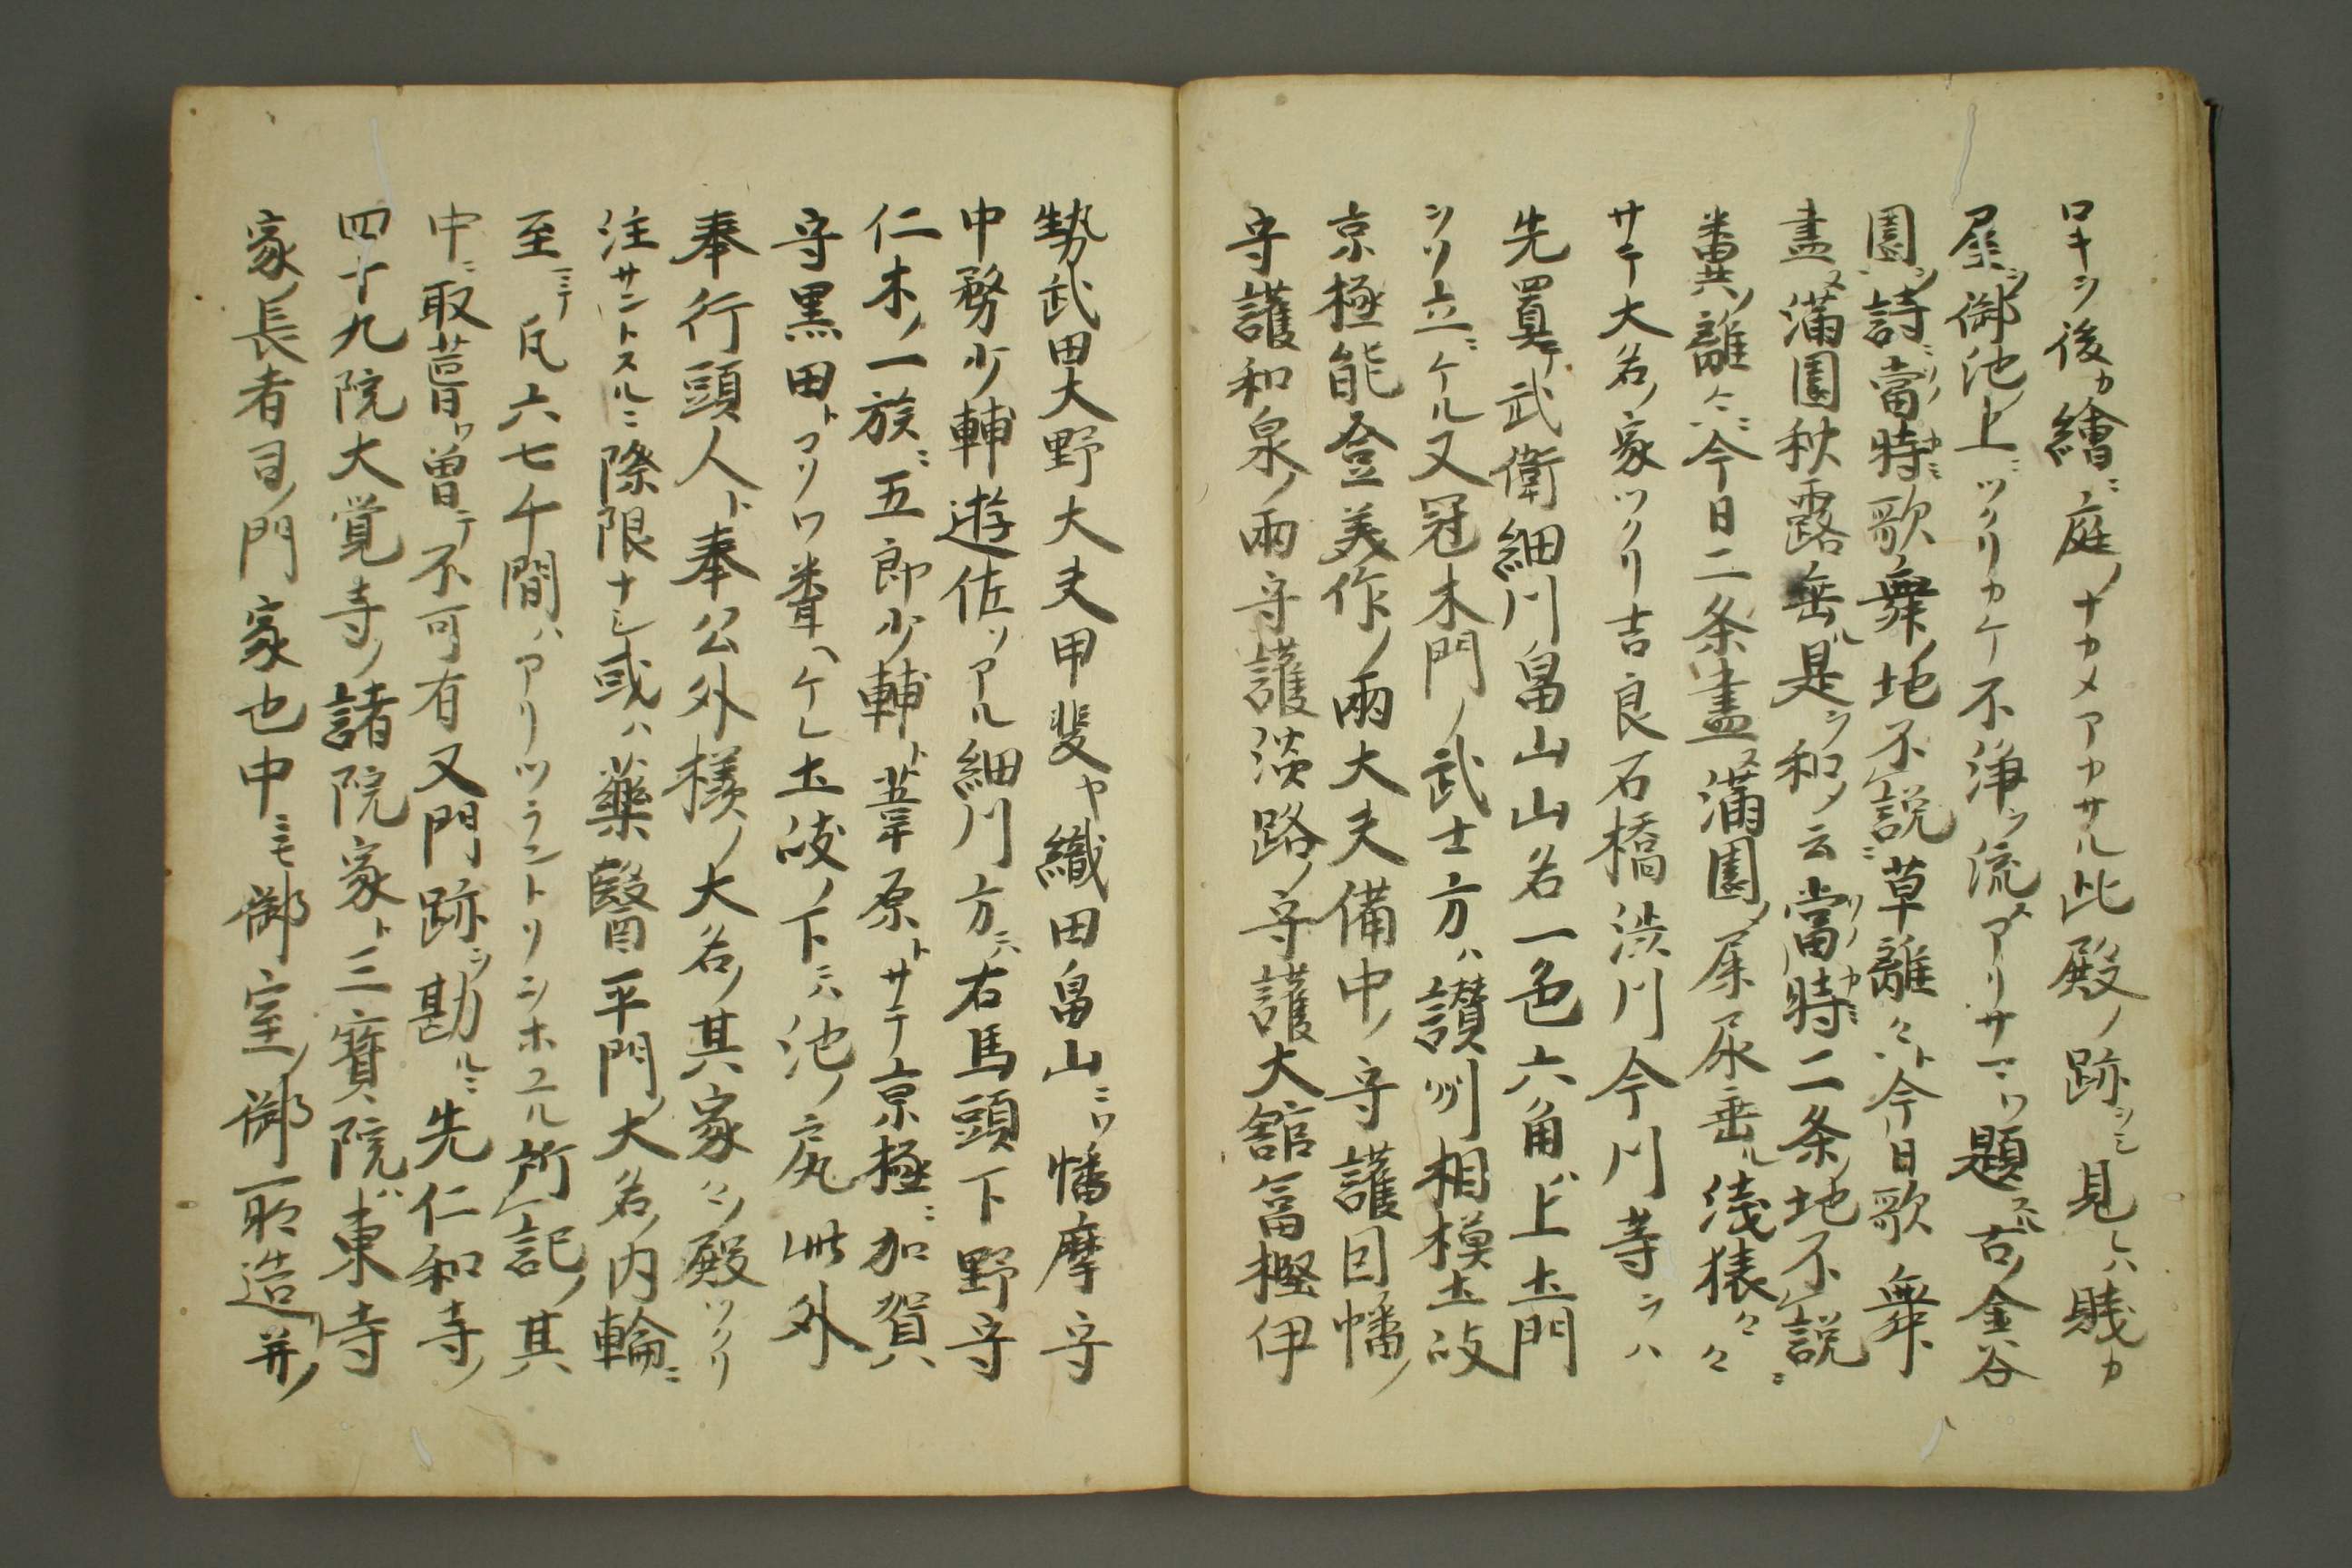 ロキシ後カ繪ニ庭ノナカメアカサル此殿ノ跡ヲミ見レハ賤カ
屋シ御池ノ上ニツクリカケ不浄ヲ流メアリサマヲ題スル古ノ金谷
園ヲシ詩ニ當時歌舞ノ地不説ニ草離々ト今日歌舞
盡ヌ滿園秋露垂ル是ヲ和ノ云當時二条ノ地不説ニ
糞ノ離々今日二条盡ヌ滿園ノ屎尿垂ル浅猿々々
サテ大名ノ家ツクリ吉良石橋渋川今川等ラハ
先置テ武衛細川畠山山名一色六角ハ上土門
シリ立ニケル又冠木門ノ武士方ハ讃州相模土岐
京極能登美作ノ兩大夫備中ノ守護因幡ノ
守護和泉ノ兩守護淡路ノ守護大舘冨樫伊
勢武田大野大夫甲斐ヤ織田畠山ニハ幡摩守
中務少輔遊佐ソアル細川方ニハ右馬頭下野守
仁木ノ一族ニ五郎少輔ト葦原トサテ京極ニ加賀ハ
守黒田トマソワ聳ヘケレ土岐ノ下ニハ池ノ尻此外
奉行頭人ト奉公外様ノ大名ノ其家々シ殿ツクリ
注サントスルニ際限ナシ或ハ藥醫平門ノ大名ノ内輪ニ
至ニテ凡六七千間ハアリツラントソシホユル所ノ記ノ其
中ニ取葺ハ曽テ不可有又門跡ヲ勘ルニ先仁和寺ノ
四十九院大覚寺ノ諸院家ト三寶院ニ東寺
家長者ヨノ門家也中ニモ御室ノ御所造并ノ